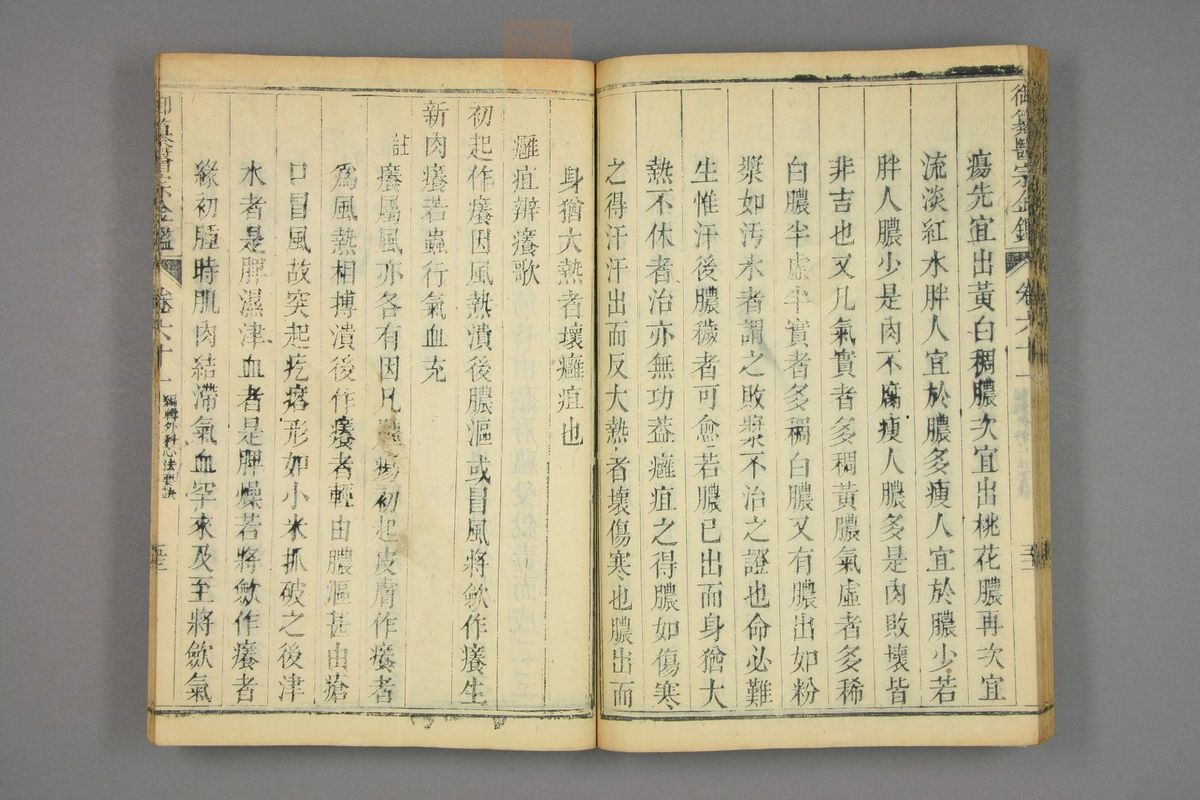 御纂醫宗金鑑 卷六十一
瘍先宜出黃白稠膿次宜出桃花膿再次宜
流淡紅水胖人宜於膿多瘦人宜於膿少若
胖人膿少是肉不腐瘦人膿多是肉敗壞皆
非吉也又凡氣實者多稠黃膿氣虛者多稀
白膿半虛半實者多稠白膿又有膿出如粉
漿如汚水者謂之敗漿不治之證也命必難
生惟汗後膿穢者可愈若膿已出而身猶大
熱不休者治亦無功蓋癰疽之得膿如傷寒
之得汗汗出而反大熱者壞傷寒也膿出而
身猶大熱者壞癰疽也
癰疽辨癢歌
初起作癢因風熱潰後膿漚或冒風將歛作癢生
新肉癢若蟲行氣血充
註癢屬風亦各有因凡腫瘍初起皮膚作癢者
爲風熱相搏潰後作癢者輕由膿漚甚由瘡
口冒風故突起疙瘩形如小米抓破之後津
水者是脾濕津血者是脾燥若將歛作癢者
緣初腫時肌肉結滯氣血罕來及至將歛氣
御纂醫宗金鑑 卷六十一 編輯外科心法要訣